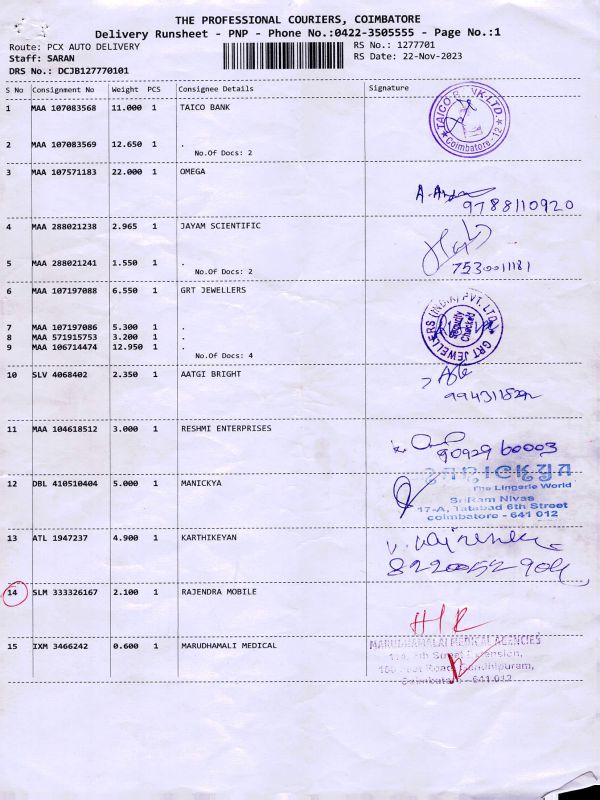 THE PROFESSIONAL COURIERS, COIMBATORE
Delivery Runsheet - PNP - Phone No.:0422-3505555 - Page No.:1
Route: PCX AUTO DELIVERY RS No.: 1277701
Staff: SARAN RS Date: 22-Nov-2023
DRS No.: DCJB127770101
S No Consignment No Weight PCS Consignee Details Signature
1 MAA 107083568 11.000 1 TAICO BANK
TAICO BANK LTD.
Coimbatore - 12
2 MAA 107083569 12.650 1 .
No.Of Docs: 2
3 MAA 107571183 22.000 1 OMEGA
9788110920
4 MAA 288021238 2.965 1 JAYAM SCIENTIFIC
5 MAA 288021241 1.550 1 .
7530011181
No.Of Docs: 2
6 MAA 107197088 6.550 1 GRT JEWELLERS
GRT JEWELLERS (INDIA) PVT. LTD.
Security Checked
7 MAA 107197086 5.300 1 .
8 MAA 571915753 3.200 1 .
9 MAA 106714474 12.950 1 .
No.Of Docs: 4
10 SLV 4068402 2.350 1 AATGI BRIGHT
11 MAA 104618512 3.000 1 RESHMI ENTERPRISES
90929 60003
12 DBL 410510404 5.000 1 MANICKYA
manickya
The Lingerie World
SriRam Nivas
17-A, Tatabad 6th Street
coimbatore - 641 012
13 ATL 1947237 4.900 1 KARTHIKEYAN
14 SLM 333326167 2.100 1 RAJENDRA MOBILE
HR
15 IXM 3466242 0.600 1 MARUDHAMALI MEDICAL
MARUDHAMALAI MEDICAL AGENCIES
Extension,
Road, Gandhipuram,
Coimbatore - 641 012